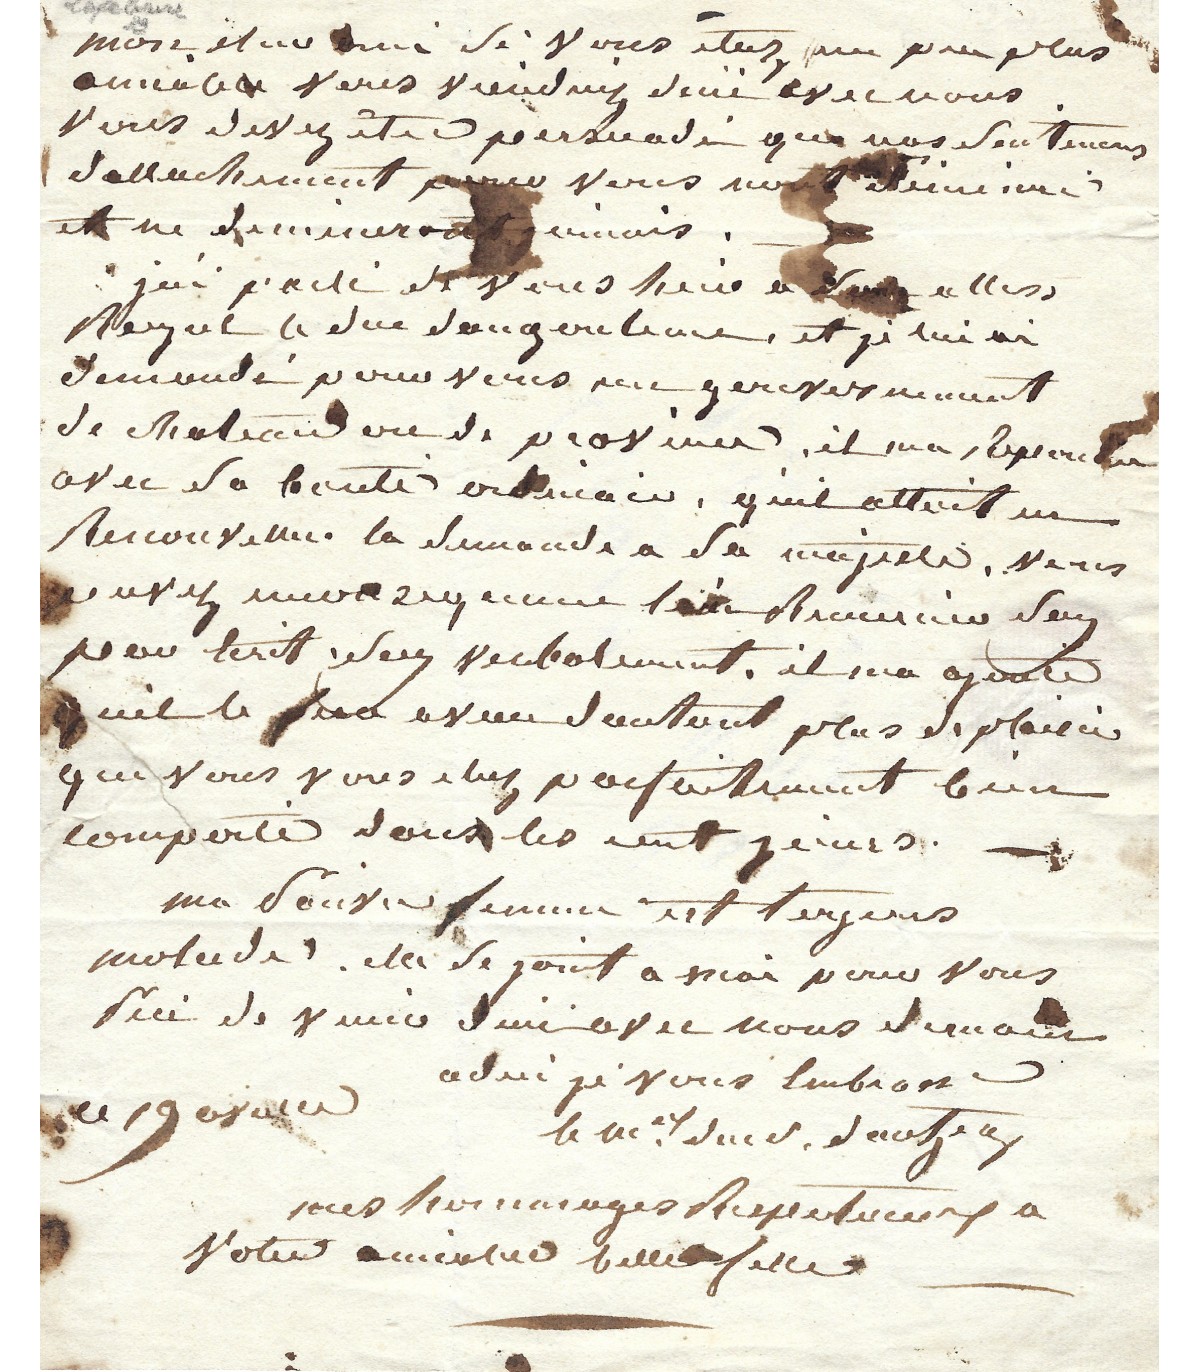 Lefebvre
mon ami si vous étiez un peu plus
aimable vous viendriez diné avec nous.
vous devez être persuadé que nos sentimens
dattachement pour vous nont diminué
et ne diminueront jamais.
jai parlé de vous hier a son altesse
Royal le duc dangouleme, et je lui ai
demandé pour vous un gouvernement
de chateau ou de province, il ma repondu
avec sa bonté ordinaire, quil alloit en
Renouveller la demande a sa majesté, vous
pouvez Remercier soy
par écrit, soy verbalement. il ma ajouté
quil le fera avec dautant plus de plaisir
que vous vous etez parfaitement bien
comporté dans les cent jours.
ma pauvre femme est toujours
malade. elle se joint a moi pour vous
prié de venir diné avec nous demain
adieu je vous embrasse
ce 19 avril
le mal duc de dantzig
mes hommages Respectueux a
votre aimable belle fille